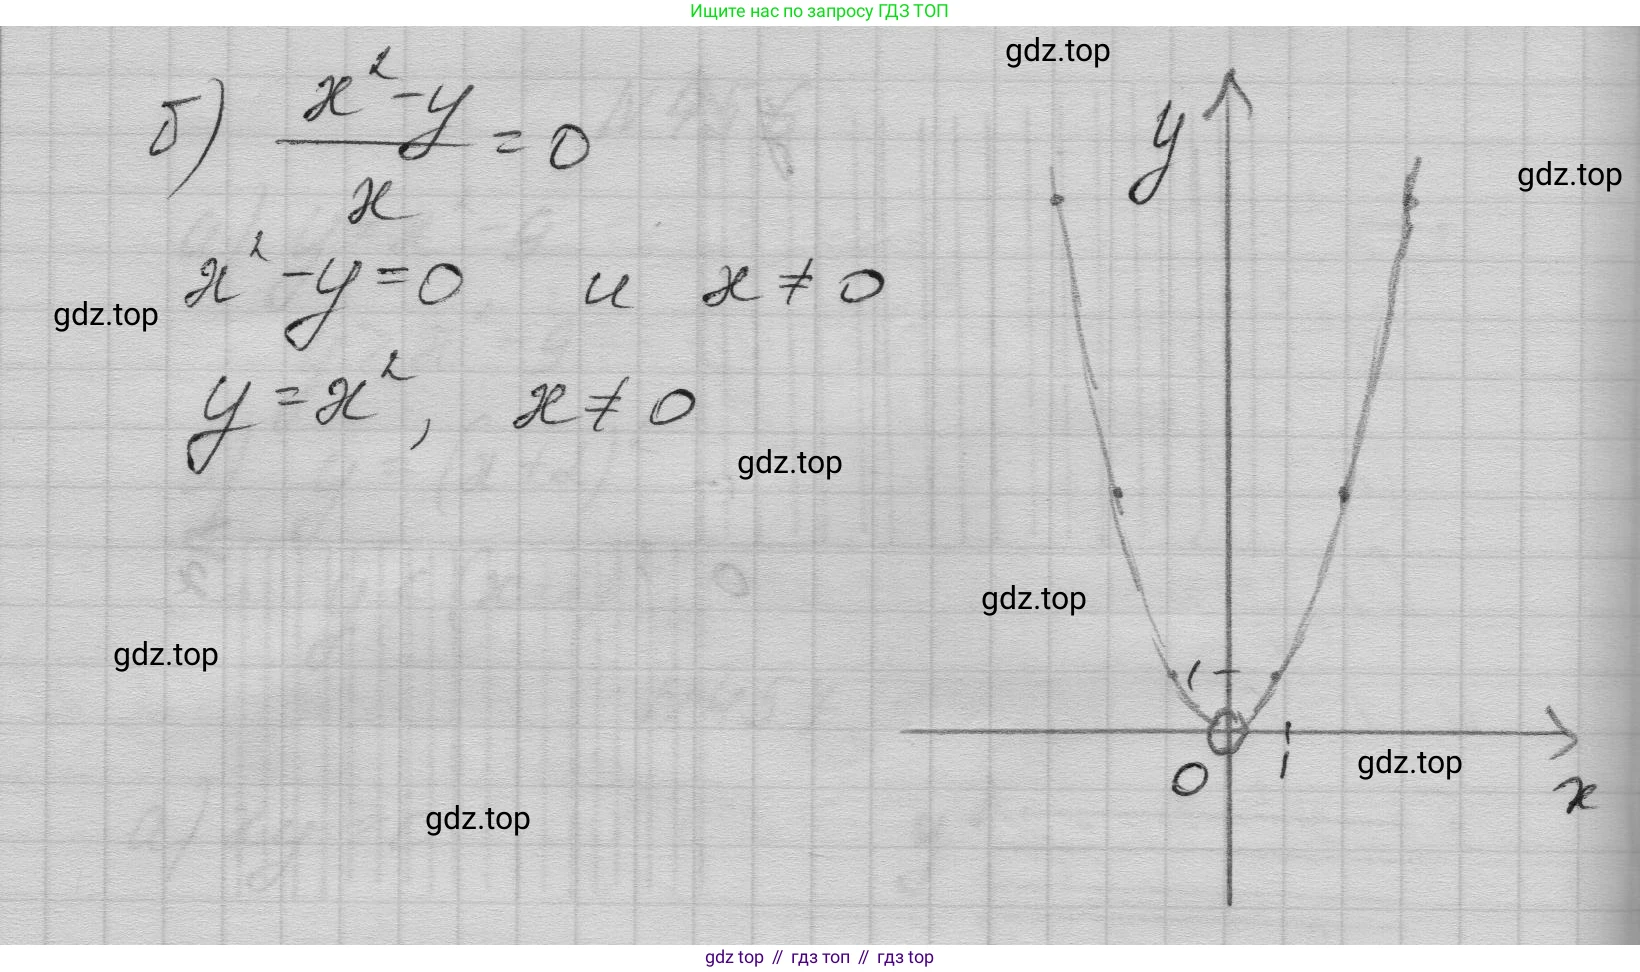 Ищите нас по запросу ГДЗ ТОП
gdz.top
gdz.top
б) x² - y / x = 0
x² - y = 0 и x ≠ 0
gdz.top
y = x², x ≠ 0
gdz.top
gdz.top
gdz.top
gdz.top
gdz.top
y
1
0
1
x
gdz top // гдз топ // gdz top